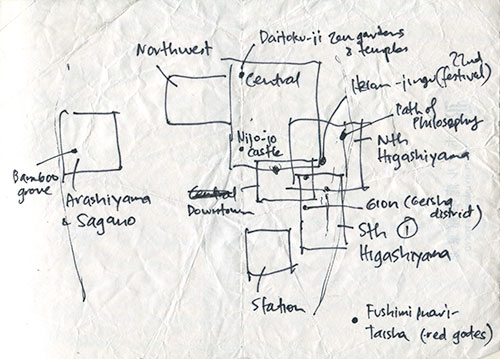 Daitoku-ji zen gardens
& temples
Northwest
Central
22nd
Heian-jingu (festival)
Path of
Philosophy
Nijo-jo
castle
Nth
Higashiyama
Bamboo
grove
Arashiyama
& Sagano
Central
Downtown
Gion (Geisha
district)
Sth 1
Higashiyama
Station
Fushimi Inari-
Taisha (red gates)